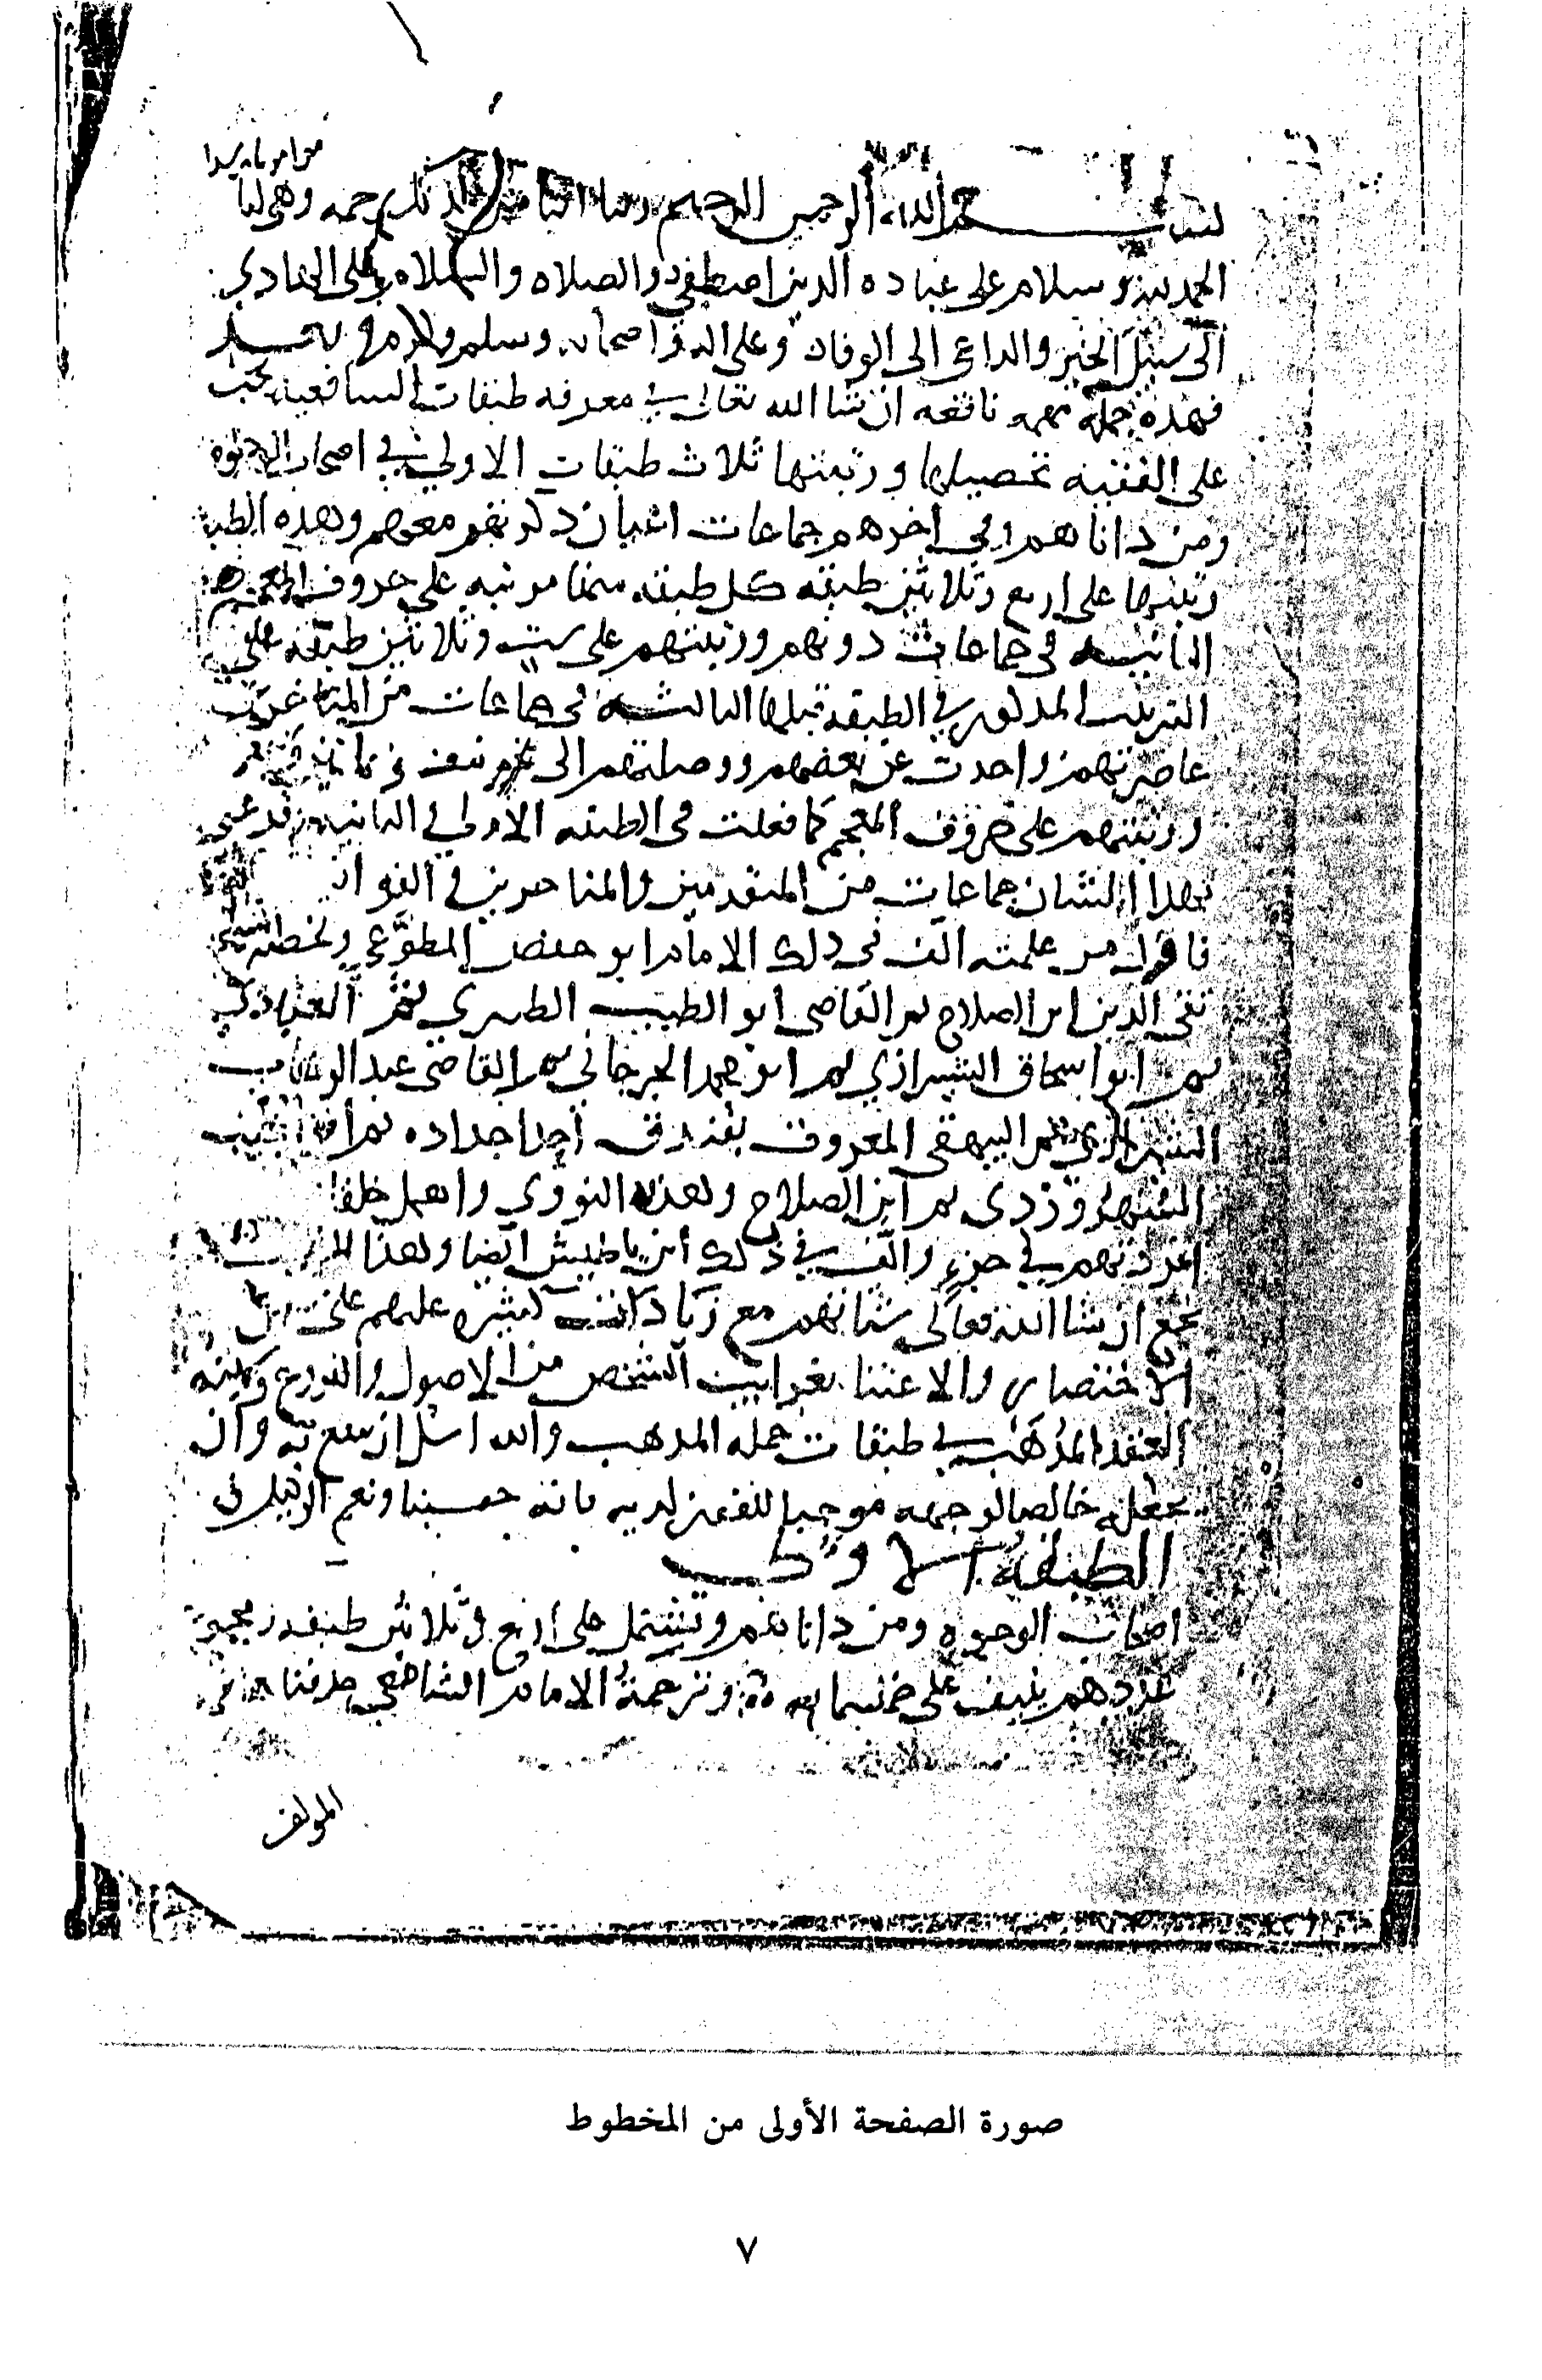 بسم الله الرحمن الرحيم ربنا اتنا من لدنك رحمه وهي لنا
من امرنا رشدا
الحمد لله وسلام على عباده الدين اصطفى والصلاه والسلام على الهادي
الى سبيل الخير والداعي الى الوفاق وعلى اله واصحابه وسلم وبعد
فهذه جملة مهمه نافعه ان شا الله تعالى في معرفه طبقات الشافعيه يجب
على الفقيه تحصيلها ورتبتها ثلاث طبقات الاولى في اصحاب الوجوه
ومن داناهم وفي اخرهم جماعات اعيان دكرتهم معهم وهذه الطبقه
رتبتها على اربع وثلاثين طبقه كل طبقه منها مرتبه على حروف المعجم
الثانيه في جماعات دونهم ورتبتهم على ست وثلاثين طبقه على
الترتيب المدكور في الطبقه قبلها الثالثه في جماعات من المتاخرين
عاصرتهم واخدت عن بعضهم ووصلتهم الى
ورتبتهم على حروف المعجم كما فعلت في الطبقه الاولى والثانيه وقد عني
بهدا الشان جماعات من المتقدمين والمتاخرين
فاول من علمته الف في دلك الامام ابو حفص المطوعي ولخصه الشيخ
تقي الدين ابن الصلاح ثم القاضي ابو الطيب الطبري ثم العبادي
ثم ابو اسحاق الشيرازي ثم ابو محمد الجرجاني ثم القاضي عبد الوهاب
الشيرازي ثم البيهقي المعروف بفندق احد اجداده ثم ابو النجيب
السهروردي ثم ابن الصلاح وهذبه النووي واهملا خلقا
افردتهم في جزء والف في ذلك ابن باطيش ايضا وهذا
يجمع ان شا الله تعالى شتاتهم مع زيادات كثيره عليهم على سبيل
الاختصار والاعتنا بغرايب الشخص من الاصول والفروع وسميته
العقد المذهب في طبقات حمله المدهب والله اسل ان ينفع به وان
يجعله خالصا لوجهه موجبا للفوز لديه فانه حسبنا ونعم الوكيل
الطبقة الاولى
اصحاب الوجوه ومن داناهم وتشتمل على اربع وثلاثين طبقه
عددهم ينيف على خمسمايه وترجمة الامام الشافعي
المولف
صورة الصفحة الأولى من المخطوط
٧